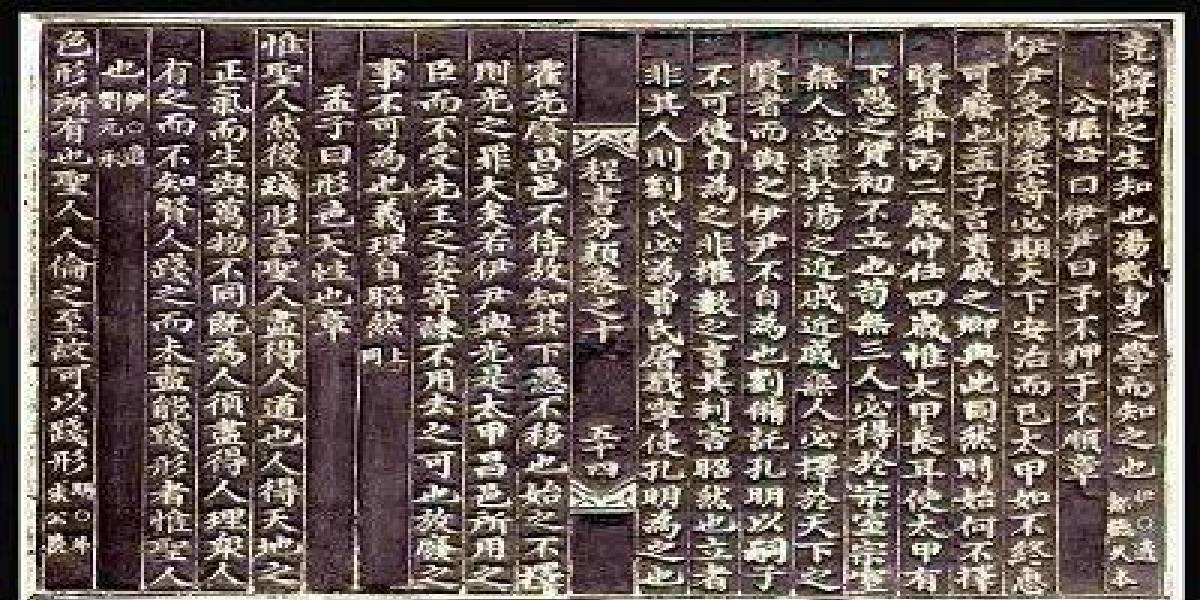 堯舜性之生知也湯武身之學而知之也
公孫丑曰伊尹曰予不狎于不順章
伊尹受湯委寄必期天下安治而已太甲如不終惠
可廢也孟子言貴戚之卿與此同然則始何不擇
賢蓋外丙二歲仲任四歲惟太甲長耳使太甲有
下愚之質初不立也苟無三人必得於宗室宗室
無人必擇於湯之近戚近戚無人必擇於天下之
賢者而與之伊尹不自為也劉備託孔明以嗣子
不可使自為之非權數之言其利害昭然也立者
非其人則劉氏必為曹氏屠戮寧使孔明為之也
程書分類卷之十 五十四
霍光廢昌邑不待放知其下愚不移也始之不擇
則光之罪大矣若伊尹與光是太甲昌邑所用之
臣而不受先王之委寄諫不用去之可也放廢之
事不可為也義理自昭然 同上
孟子曰形色天性也章
惟聖人然後踐形言聖人盡得人道也人得天地之
正氣而生與萬物不同既為人須盡得人理眾人
有之而不知賢人踐之而未盡能踐形者惟聖人
也 伊○遺 劉元承
色形所有也聖人人倫之至故可以踐形